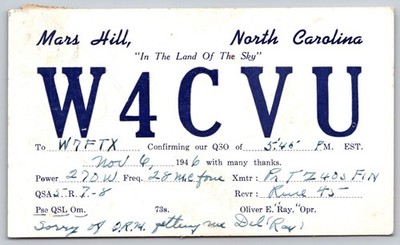 Mars Hill, North Carolina
"In The Land Of The Sky"
W4CVU
To W7FTX Confirming our QSO of 5:45 PM. EST.
Nov 6, 1946 with many thanks.
Power 270W Freq. 28 Mc fone Xmtr: PR T Z40S FIN
QSA 5-R. 7-8 Rcvr: RME 45
Pse QSL Om. 73s. Oliver E. Ray, "Opr.
Sorry of QRM getting me Del Ray